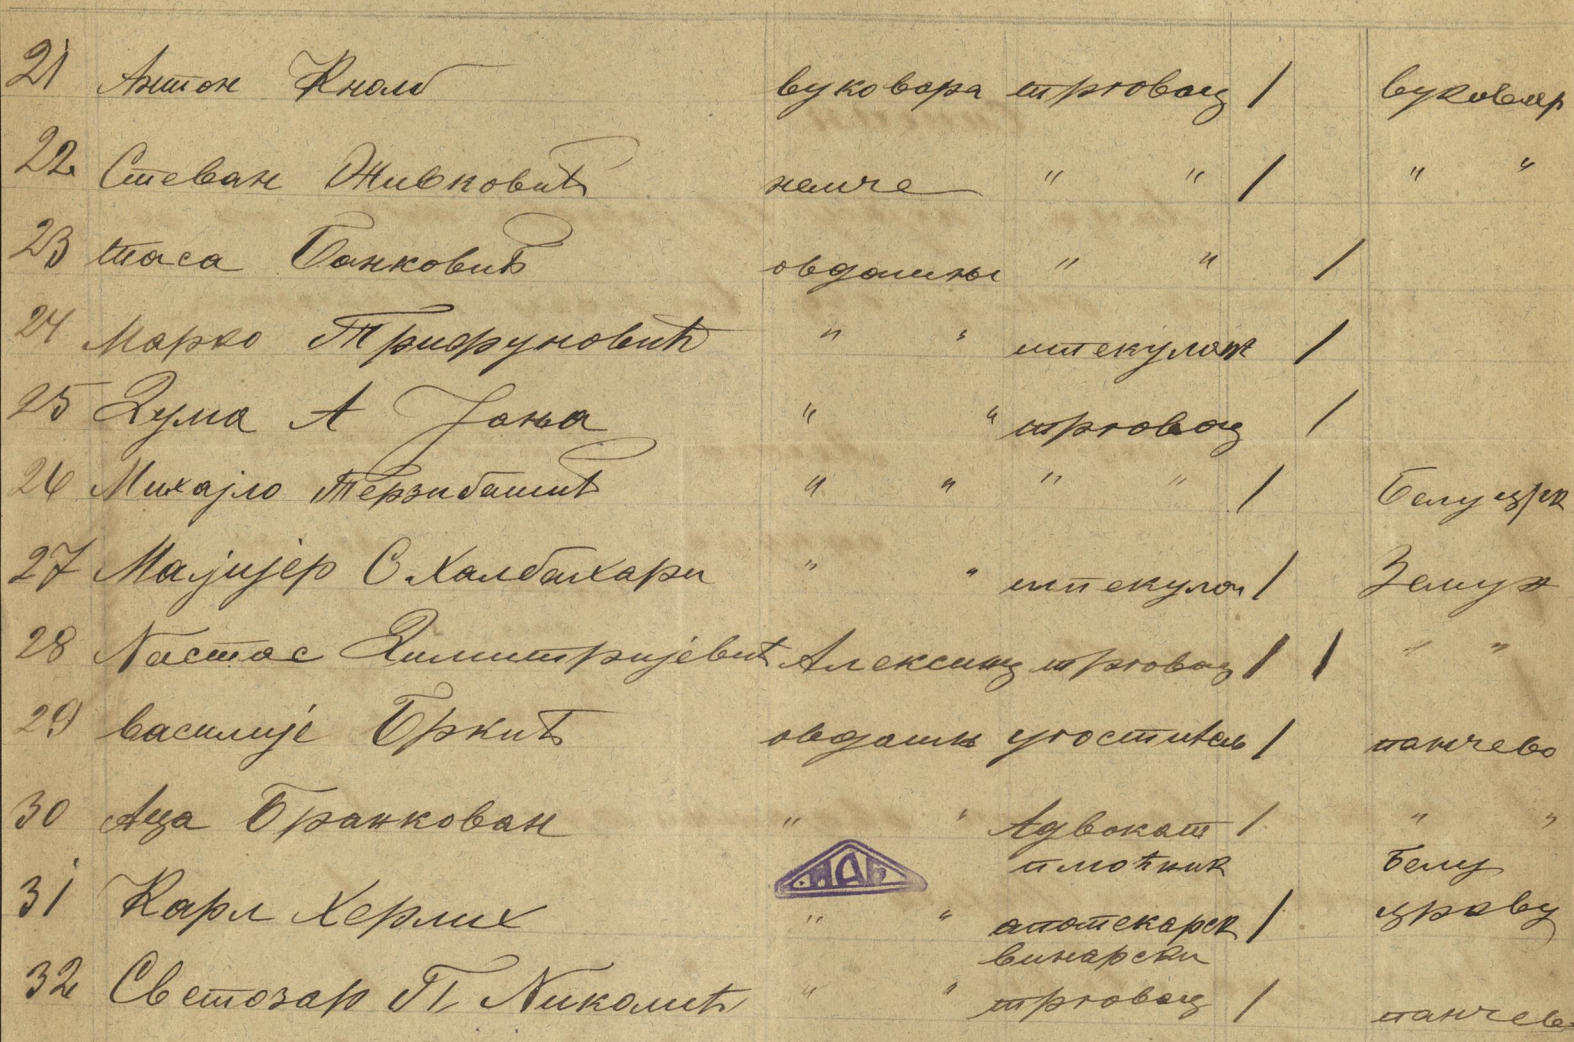 21 Антон Кнолб вуковара трговац / вуковар
22 Стеван Живковић немче " " / " "
23 таса Банковић овдашњи " " /
24 Марко Трифуновић " " шпекулат /
25 Дума А Јања " " трговац /
26 Михајло Терзибашић " " " " / Белу црк
27 Малијер С Халбахари " " шпекулан / Земун
28 Настас Димитријевић Алексинц трговац / / " "
29 василије Бркић овдашњ угоститељ / панчево
30 Аца Бранкован " " Адвокат / " "
31 Карл Херлих " " пмоћник апотекарск / Белу цркву
32 Светозар П. Николић " " винарски трговац / панчево